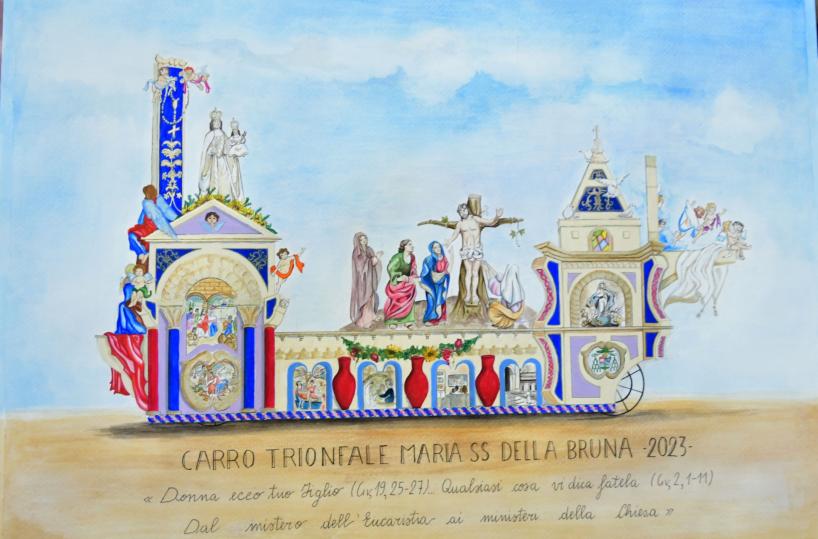 CARRO TRIONFALE MARIA SS DELLA BRUNA -2023-
« Donna ecco tuo Figlio (Gv, 19, 25-27)... Qualsiasi cosa vi dica fatela (Gv, 2, 1-11)
Dal mistero dell'Eucaristia ai ministeri della Chiesa »